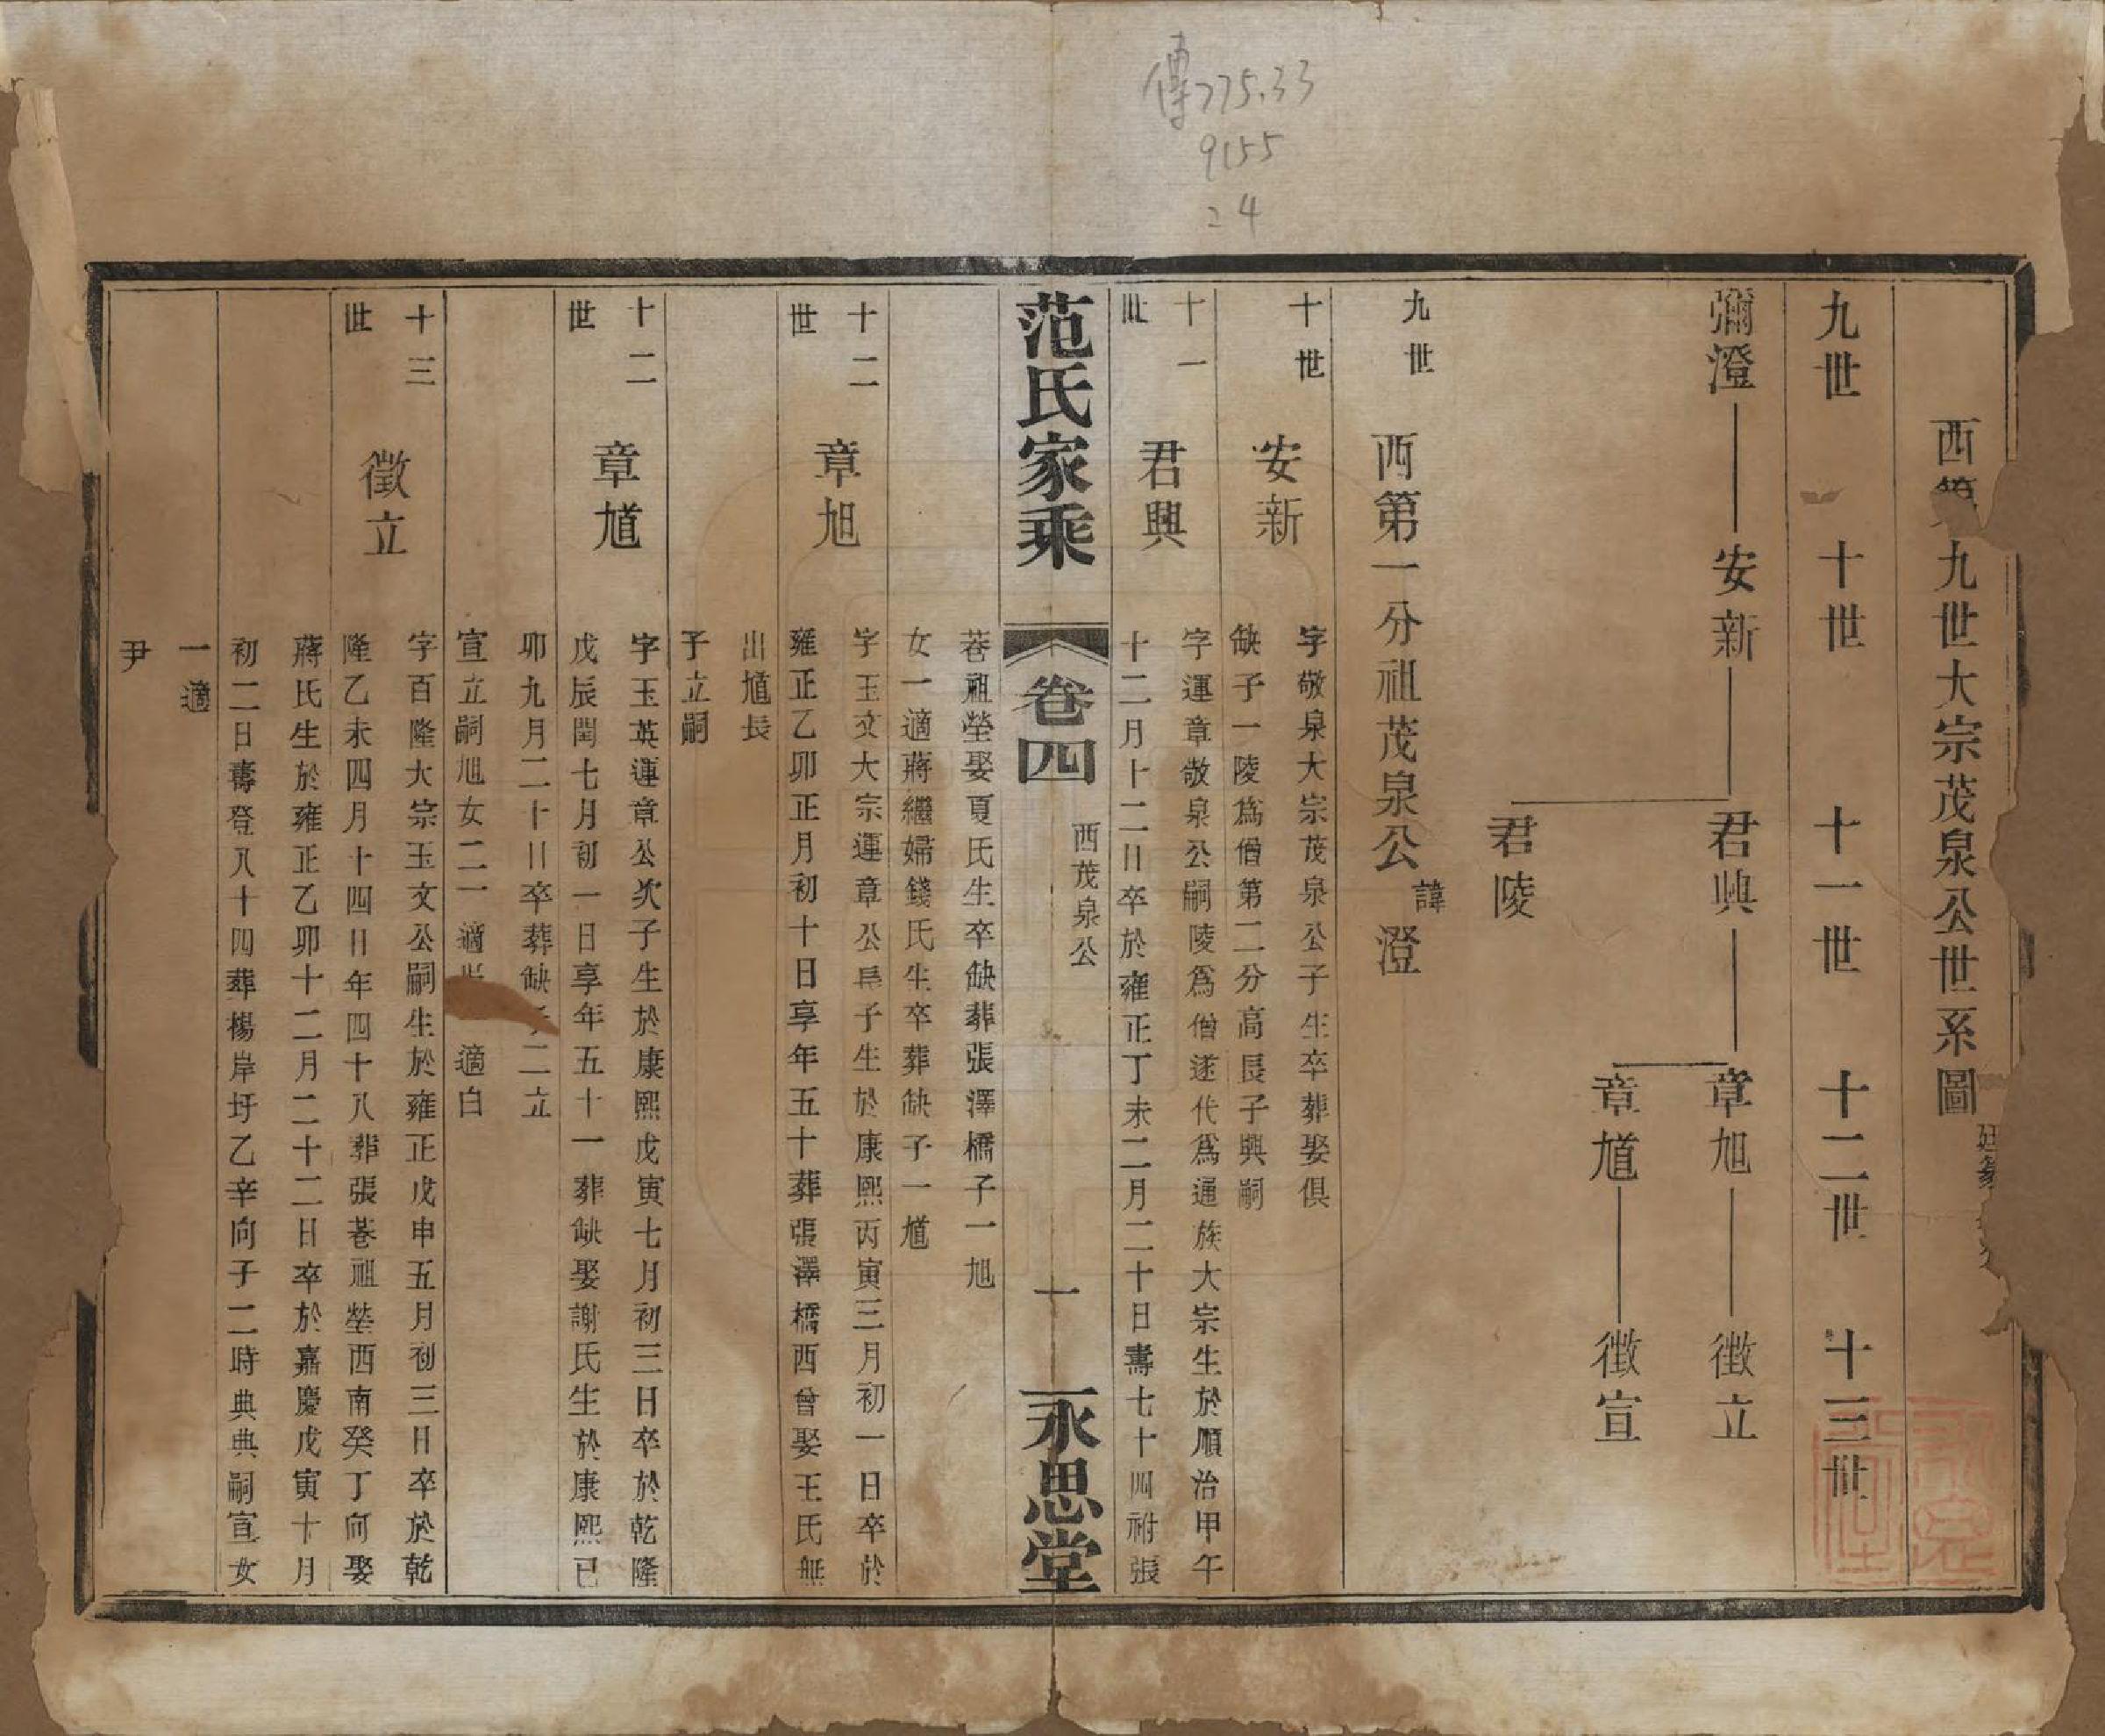 傳775.33
9155
24
西第九世大宗茂泉公世系圖
九世 十世 十一世 十二世 十三世
彌澄 安新 君興 章旭 徵立
章馗 徵宣
君陵
西第一分祖茂泉公諱澄
九世
十世 安新 字敬泉大宗茂泉公子生卒葬娶俱
缺子一陵為僧第二分高長子興嗣
十一世 君興 字運章敬泉公嗣陵為僧遂代為通族大宗生於順治甲午
十二月十二日卒於雍正丁未二月二十日壽七十四祔張
范氏家乘 卷四 西茂泉公 一 永思堂
巷祖塋娶夏氏生卒缺葬張澤橋子一旭
女一適蔣繼婦錢氏生卒葬缺子一馗
十二世 章旭 字玉文大宗運章公長子生於康熙丙寅三月初一日卒於
雍正乙卯正月初十日享年五十葬張澤橋西曾娶王氏無
出馗長
子立嗣
十二世 章馗 字玉英運章公次子生於康熙戊寅七月初三日卒於乾隆
戊辰閏七月初一日享年五十一葬缺娶謝氏生於康熙己
卯九月二十日卒葬缺子二立
宣立嗣旭女二一適 適白
十三世 徵立 字百隆大宗玉文公嗣生於雍正戊申五月初三日卒於乾
隆乙未四月十四日年四十八葬張巷祖塋西南癸丁向娶
蔣氏生於雍正乙卯十二月二十二日卒於嘉慶戊寅十月
初二日壽登八十四葬楊岸圩乙辛向子二時典典嗣宣女
一適
尹